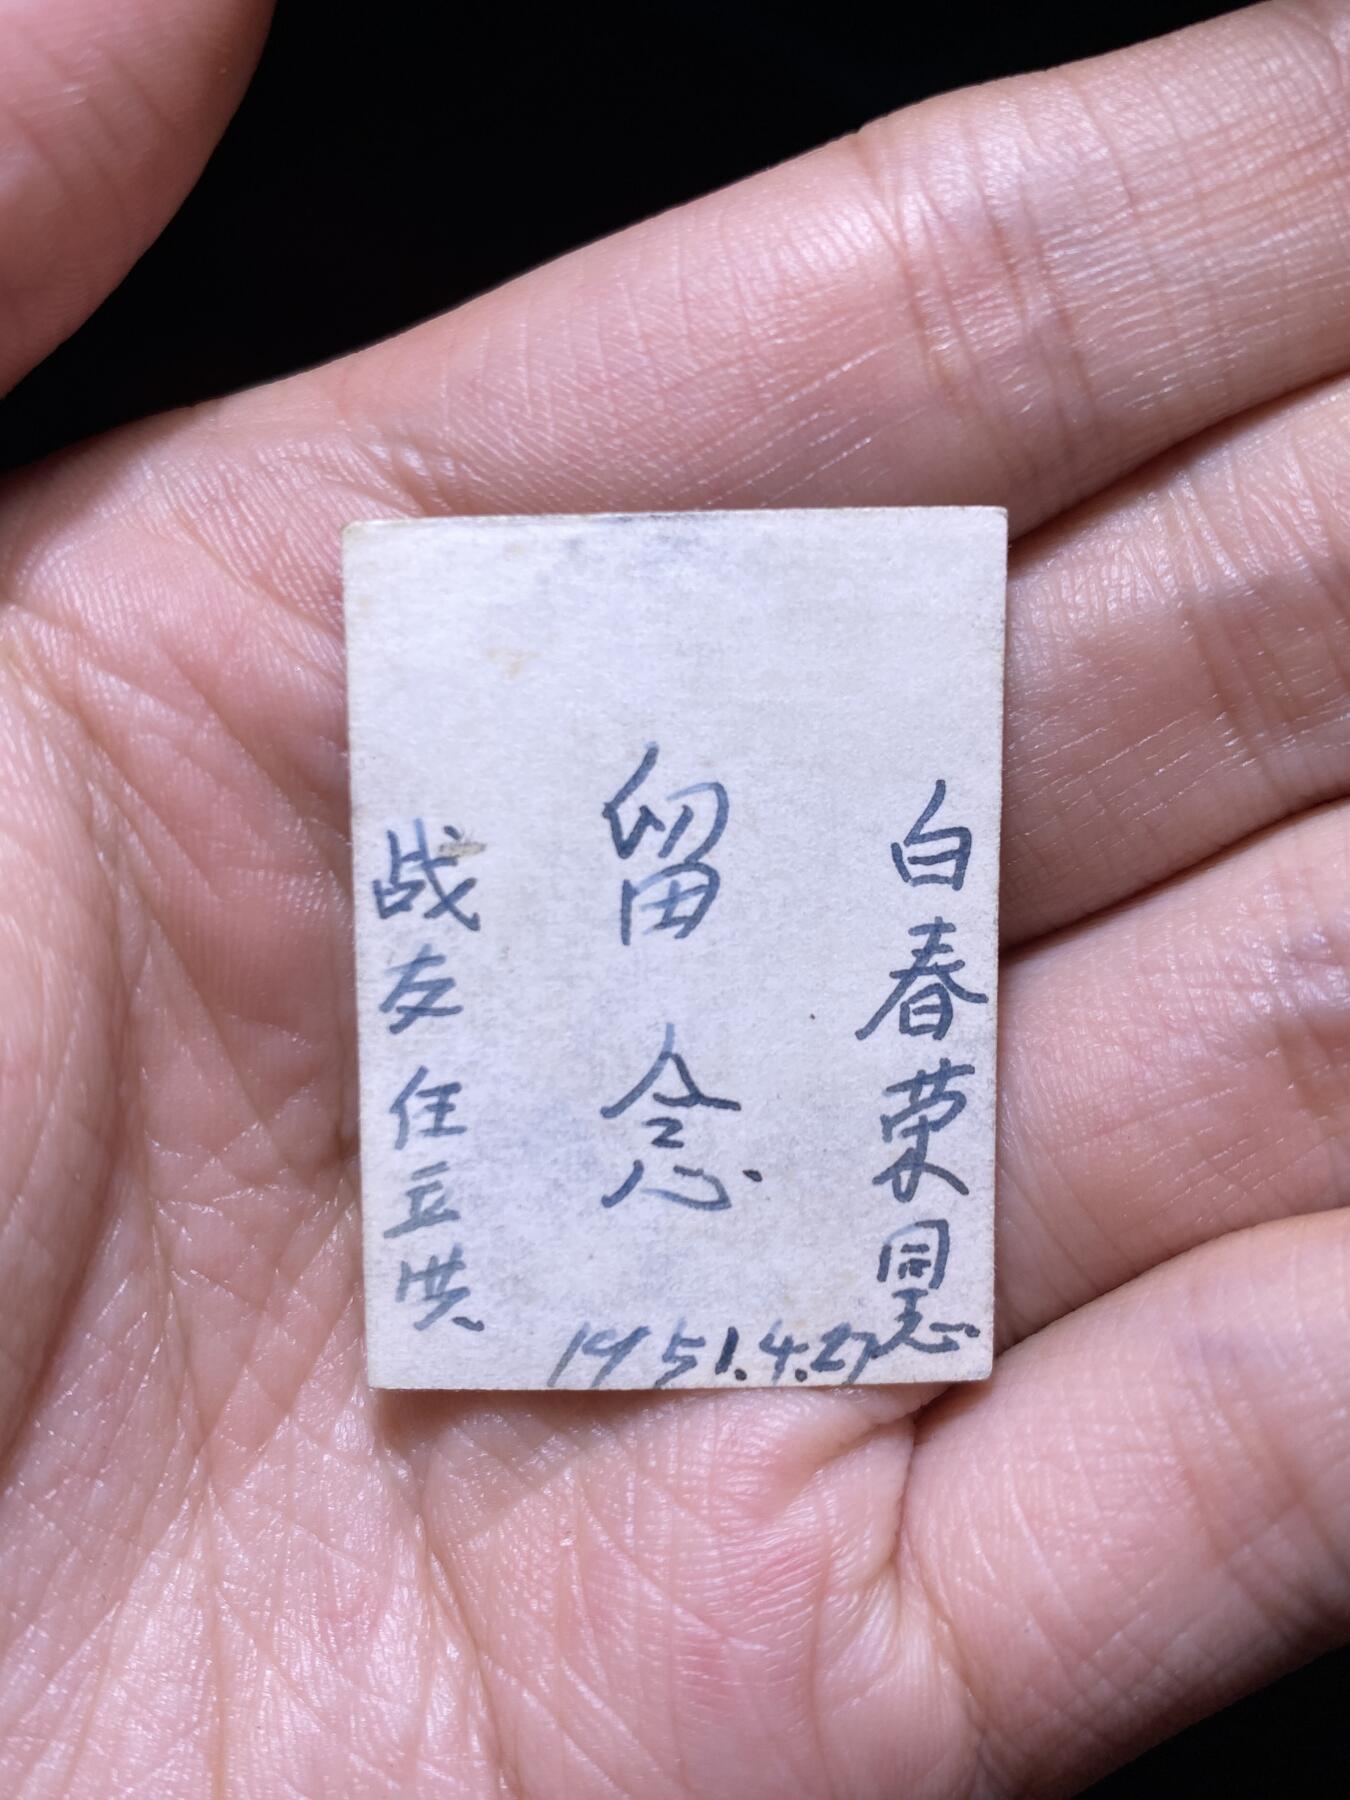 白春荣同志
留念
战友任立洪
1951.4.27